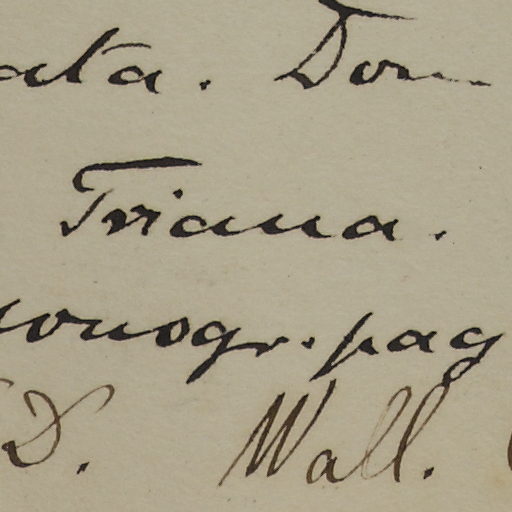 ata. Don
Triana.
onogr. pag
D. Wall.